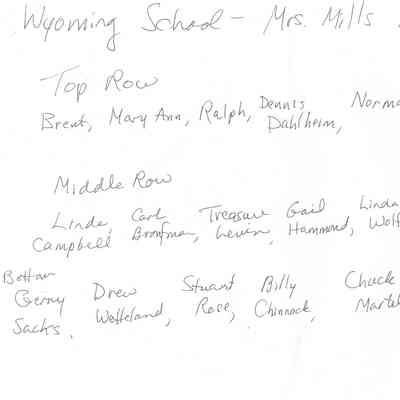 Wyoming School - Mrs. Mills
Top Row
Brent, Mary Ann, Ralph, Dennis Norma
Dahlheim,
Middle Row
Linda Carl Treasure Gail Linda
Campbell Bronfman, Levin, Hammond, Wolf
Bottom
Gerry Drew Stuart Billy Chuck
Sachs, Wetteland, Rose, Chinnock, Martel